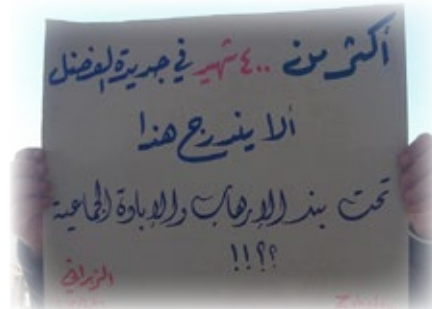 أكثر من ٤٠٠ شهيد في جديدة الفضل
ألا يندرج هذا
تحت بند الإرهاب والإبادة الجماعية
؟؟!!!